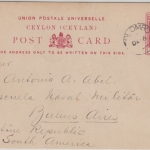 UNION POSTALE UNIVERSELLE
CEYLON (CEYLAN)
POST CARD
THE ADDRESS ONLY TO BE WRITTEN ON THIS SIDE.
Antonio A. Abil
Escuela Naval Militar
Buenos Aires
Republic
South America